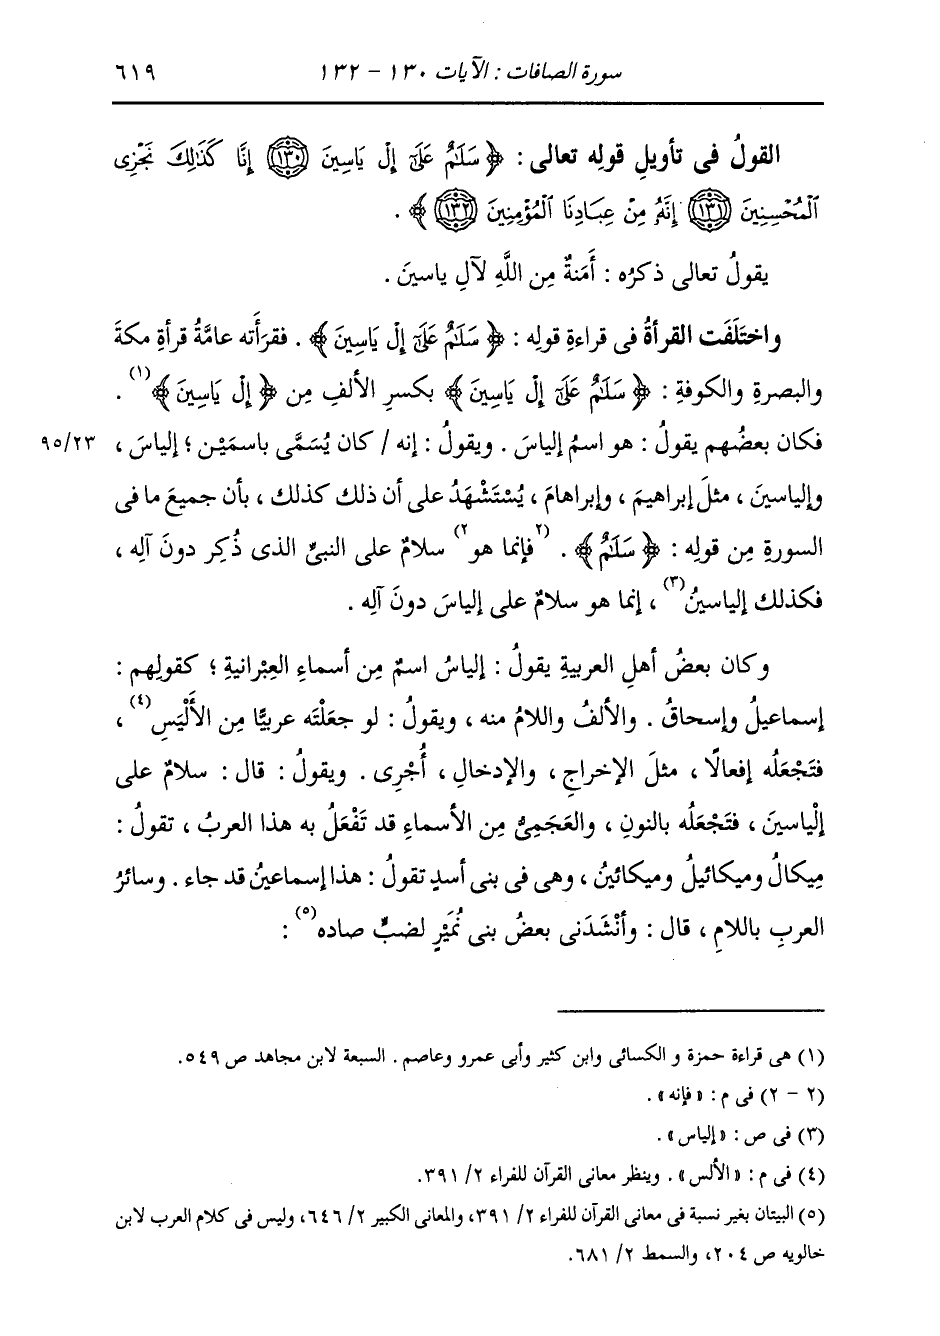 سورة الصافات : الآيات ١٣٠ - ١٣٢ ٦١٩
القولُ فى تأويلِ قولِه تعالى : ﴿ سَلَٰمٌ عَلَىٰٓ إِلْ يَاسِينَ ﴿١٣٠﴾ إِنَّا كَذَٰلِكَ نَجْزِى
ٱلْمُحْسِنِينَ ﴿١٣١﴾ إِنَّهُۥ مِنْ عِبَادِنَا ٱلْمُؤْمِنِينَ ﴿١٣٢﴾ ﴾ .
يقولُ تعالى ذكرُه : أَمَنةٌ مِن اللَّهِ لآلِ ياسينَ .
واختَلَفَت القرأةُ فى قراءةِ قولِه : ﴿ سَلَٰمٌ عَلَىٰٓ إِلْ يَاسِينَ ﴾ . فقرَأَته عامَّةُ قرأةِ مكةَ
والبصرةِ والكوفةِ : ﴿ سَلَٰمٌ عَلَىٰٓ إِلْ يَاسِينَ ﴾ بكسرِ الألفِ مِن ﴿ إِلْ يَاسِينَ ﴾(١) .
فكان بعضُهم يقولُ : هو اسمُ إلياسَ . ويقولُ : إنه / كان يُسَمَّى باسمَيْن ؛ إلياسَ ، ٩٥/٢٣
وإلياسينَ ، مثلَ إبراهيمَ ، وإبراهامَ ، يُسْتَشْهَدُ على أن ذلك كذلك ، بأن جميعَ ما فى
السورةِ مِن قولِه : ﴿ سَلَٰمٌ ﴾ . (٢فإنما هو٢) سلامٌ على النبىِّ الذى ذُكِر دونَ آلِه ،
فكذلك إلياسينُ(٣) ، إنما هو سلامٌ على إلياسَ دونَ آلِه .
وكان بعضُ أهلِ العربيةِ يقولُ : إلياسُ اسمٌ مِن أسماءِ العِبْرانيةِ ؛ كقولِهم :
إسماعيلُ وإسحاقُ . والألفُ واللامُ منه ، ويقولُ : لو جعَلْتَه عربيًّا مِن الأَلْيَسِ(٤) ،
فتَجْعَلُه إفعالًا ، مثلَ الإخراجِ ، والإدخالِ ، أُجْرِى . ويقولُ : قال : سلامٌ على
إلْياسينَ ، فتَجْعَلُه بالنونِ ، والعَجَمِىُّ مِن الأسماءِ قد تَفْعَلُ به هذا العربُ ، تقولُ :
مِيكالُ وميكائيلُ وميكائينُ ، وهى فى بنى أسدٍ تقولُ : هذا إسماعينُ قد جاء . وسائرُ
العربِ باللامِ ، قال : وأنْشَدَنى بعضُ بنى نُمَيْرٍ لضبٍّ صاده(٥) :
(١) هى قراءة حمزة و الكسائى وابن كثير وأبى عمرو وعاصم . السبعة لابن مجاهد ص ٥٤٩.
(٢ - ٢) فى م : «فإنه» .
(٣) فى ص : «إلياس» .
(٤) فى م : «الألس» . وينظر معانى القرآن للفراء ٢/ ٣٩١.
(٥) البيتان بغير نسبة فى معانى القرآن للفراء ٢/ ٣٩١، والمعانى الكبير ٢/ ٦٤٦، وليس فى كلام العرب لابن
خالويه ص ٢٠٤، والسمط ٢/ ٦٨١.